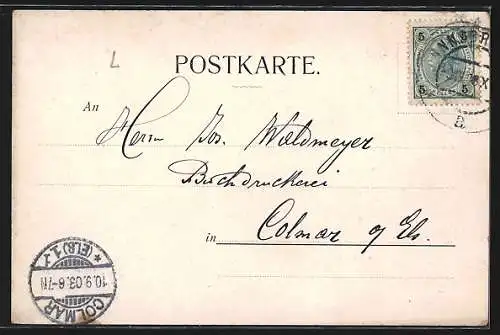 L
POSTKARTE.
5 5
An
Herrn Jos. Waldmeyer
Buchdruckerei
in Colmar i/ Els.
COLMAR
10.9.03.6-7N
* (ELS) 1 1
a